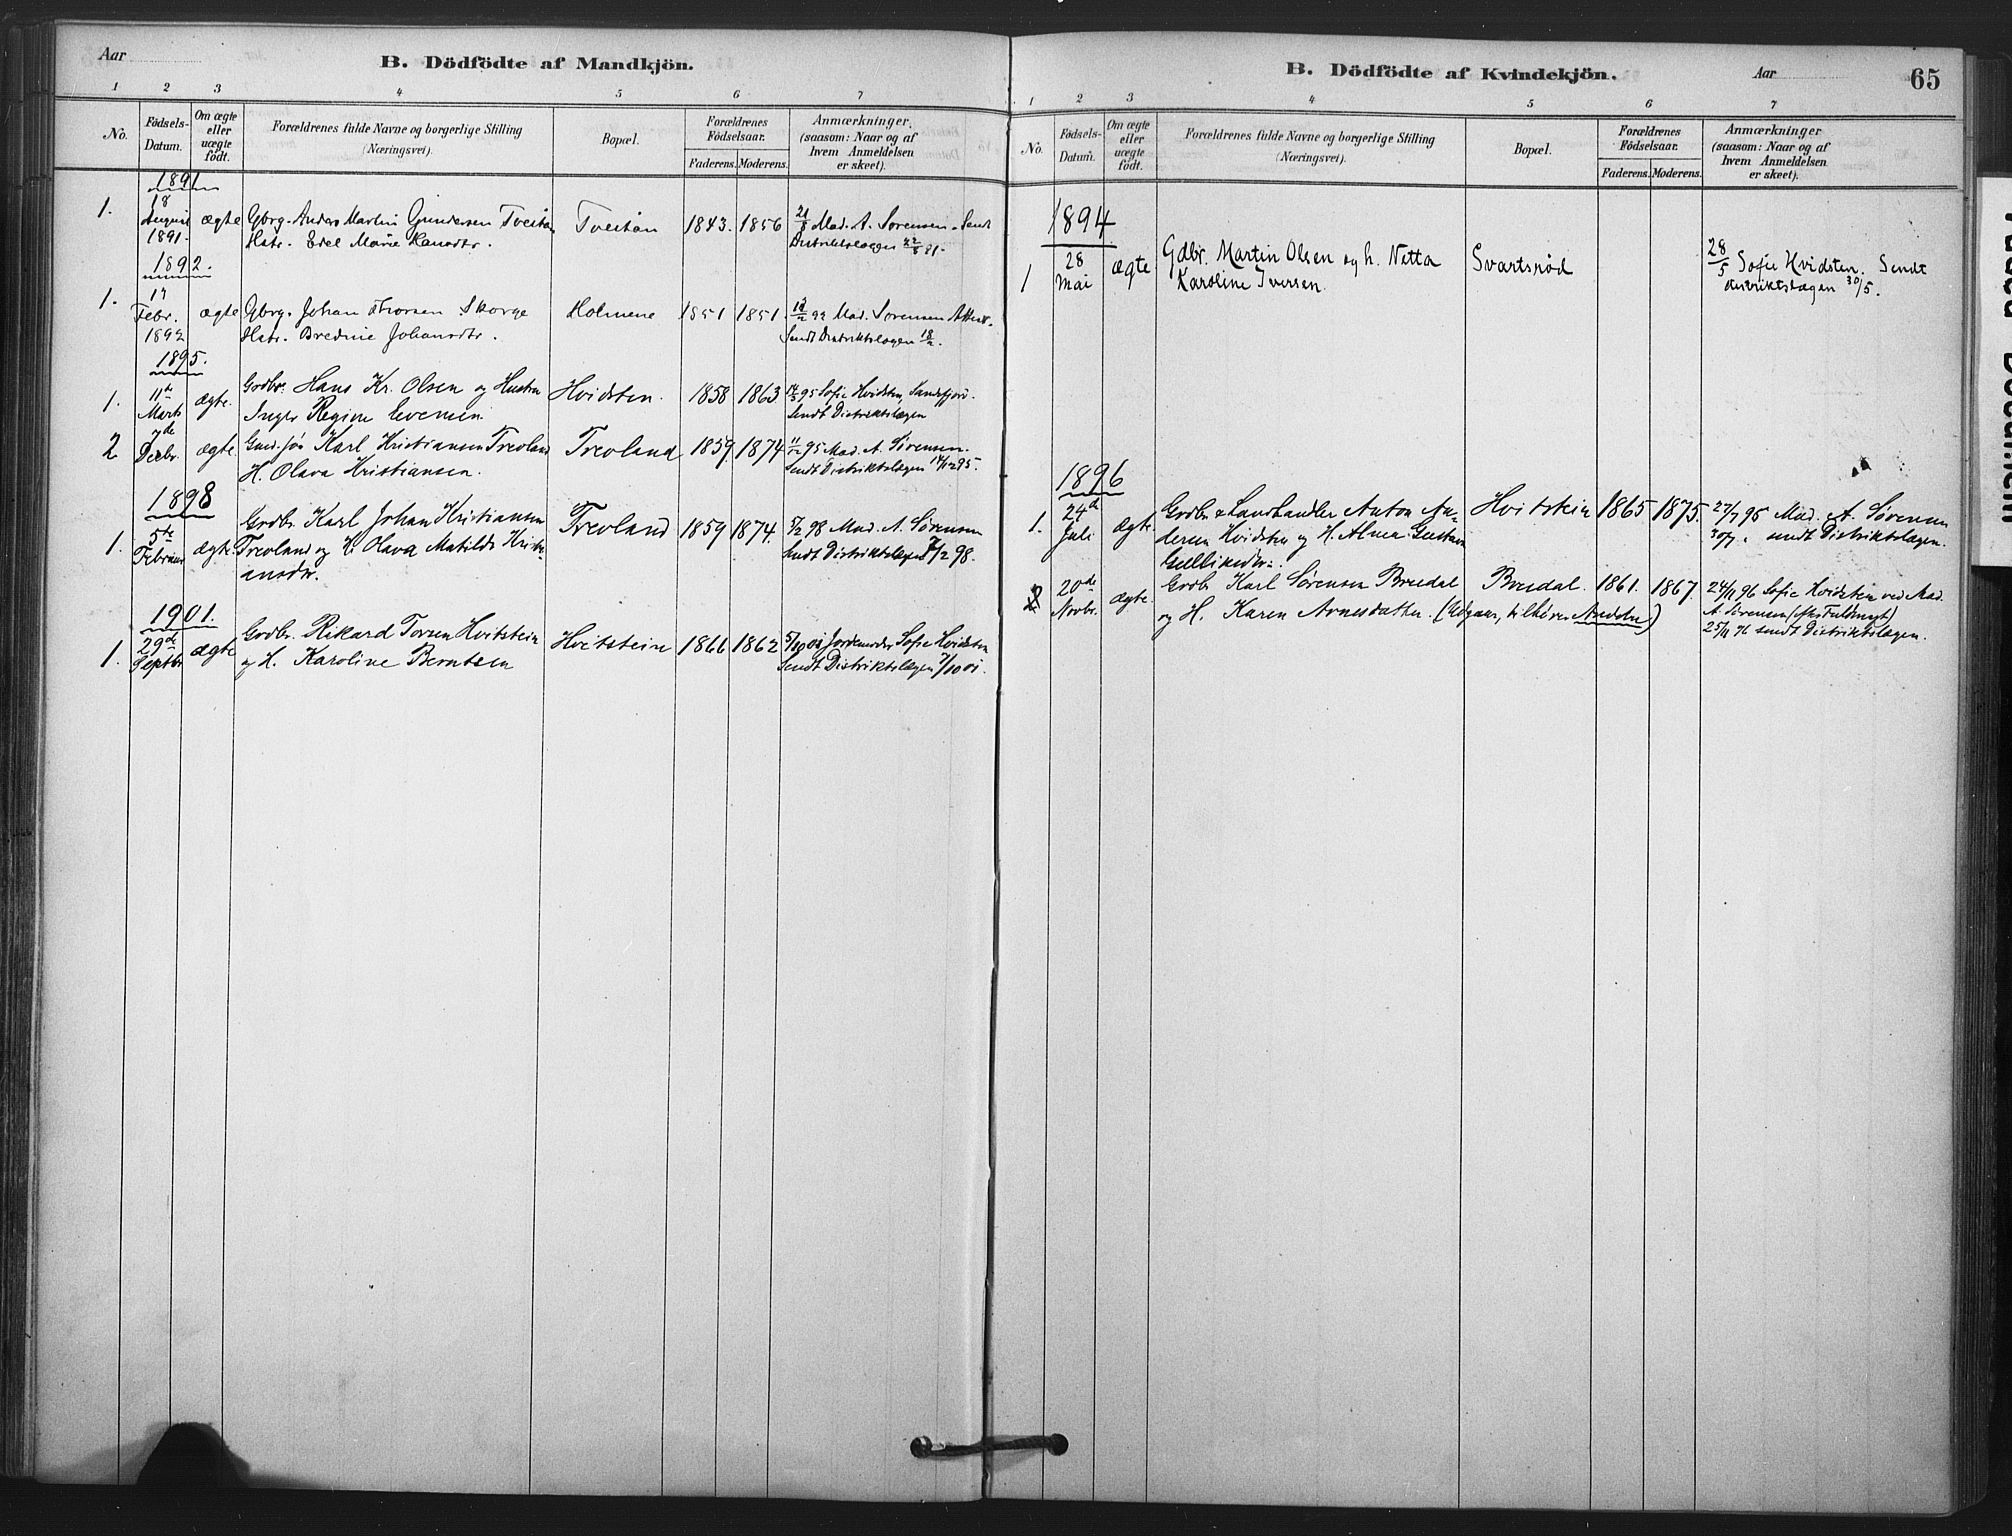 Aar
B. Dödfödte af Mandkjön.
1 2 3 4 5 6 7
No.
Födsels-
Datum.
Om ægte
eller
uægte
födt.
Forældrenes fulde Navne og borgerlige Stilling
(Næringsvei).
Bopæl.
Forældrenes
Födselsaar.
Faderens. Moderens.
Anmærkninger.
(saasom: Naar og af
hvem Anmeldelsen
er skeet).
1891
1. 18 August 1891. ægte
Gbrg. Anders Martin Gundersen Tveitan
Hstr. Edel Marie
Tveitan 1843. 1856
21/8 Mad. A. Sørensen. Sendt
Distriktslægen 22/8 91.
1892.
1. 17 Febr. 1892 ægte
Gbrg. Johan Thorsen Skorge
Hstr. Bredine Johansdtr.
Holmene 1851 1851.
92 Mad. Sørensen
Sendt Distriktslægen 18/2.
1895.
1. 11te Marts ægte.
Grdbr. Hans Kr. Olsen og Hustru
Inger Regine Evensen.
Hvidsten. 1858 1863
14/3 95 Sofie Hvidsten, Sandefjord.
Sendt Distriktslægen
2 Decbr. ægte.
Karl Kristiansen Trevland
H. Olava Kristiansen.
Trevland 1859 1874
11/12 95 Mad. A. Sørensen.
Sendt Distriktslægen 14/12 95.
1898
1. 5te Februar ægte
Grdbr. Karl Johan Kristiansen
Trevland og H. Olava Matilde Kristi-
ansdtr.
Trevland 1859 1874.
5/2 98 Mad. A. Sørensen
Sendt Distriktslægen 7/2 98.
1901.
1. 29de Septbr. ægte
Grdbr. Rikard Torsen Hvitstein
og H. Karoline Berntsen
Hvitstein 1866 1862
5/10 01 Jordemoder Sofie Hvidsten
Sendt Distriktslægen 7/10 01.
B. Dödfödte af Kvindekjön.
Aar
65
1 2 3 4 5 6 7
No.
Födsels-
Datum.
Om ægte
eller
uægte
födt.
Forældrenes fulde Navne og borgerlige Stilling
(Næringsvei).
Bopæl.
Forældrenes
Födselsaar.
Faderens. Moderens.
Anmærkninger
(saasom: Naar og af
hvem Anmeldelsen
er skeet).
1894
1 28 Mai ægte
Gdbr. Martin Olsen og h. Netta
Karoline Iversen.
Svartsrød
28/5 Sofie Hvidsten. Sendt
distriktslægen 30/5.
1896
1. 24de Juli ægte.
Grdbr. & Landhandler Anton An-
dersen Hvidsten og H. Alma Gustava
Hvitstein 1865 1875.
27/7 95 Mad. A. Sørensen
30/7. sendt Distriktslægen.
20de Novbr. ægte.
Grdbr. Karl Sørensen Bredal
og H. Karen Arnesdatter. (Udgaar, tilhører)
Bredal. 1861. 1867.
24/11 96 Sofie Hvidsten ved Mad.
A. Sørensen
25/11 96 sendt Distriktslægen.